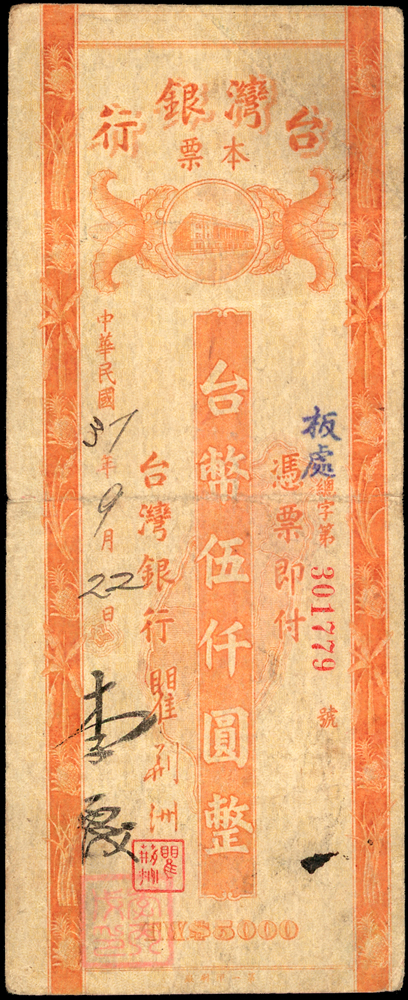 台灣銀行
本票
板處總字第301779號
憑票即付
台幣伍仟圓整
台灣銀行 瞿荊洲
瞿荊洲
中華民國37年9月22日
TW$5000